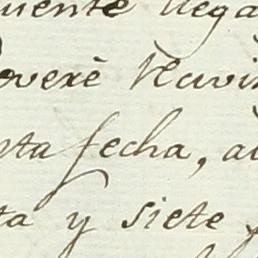 uente llega
overè Navi
sta fecha, a
ta y siete